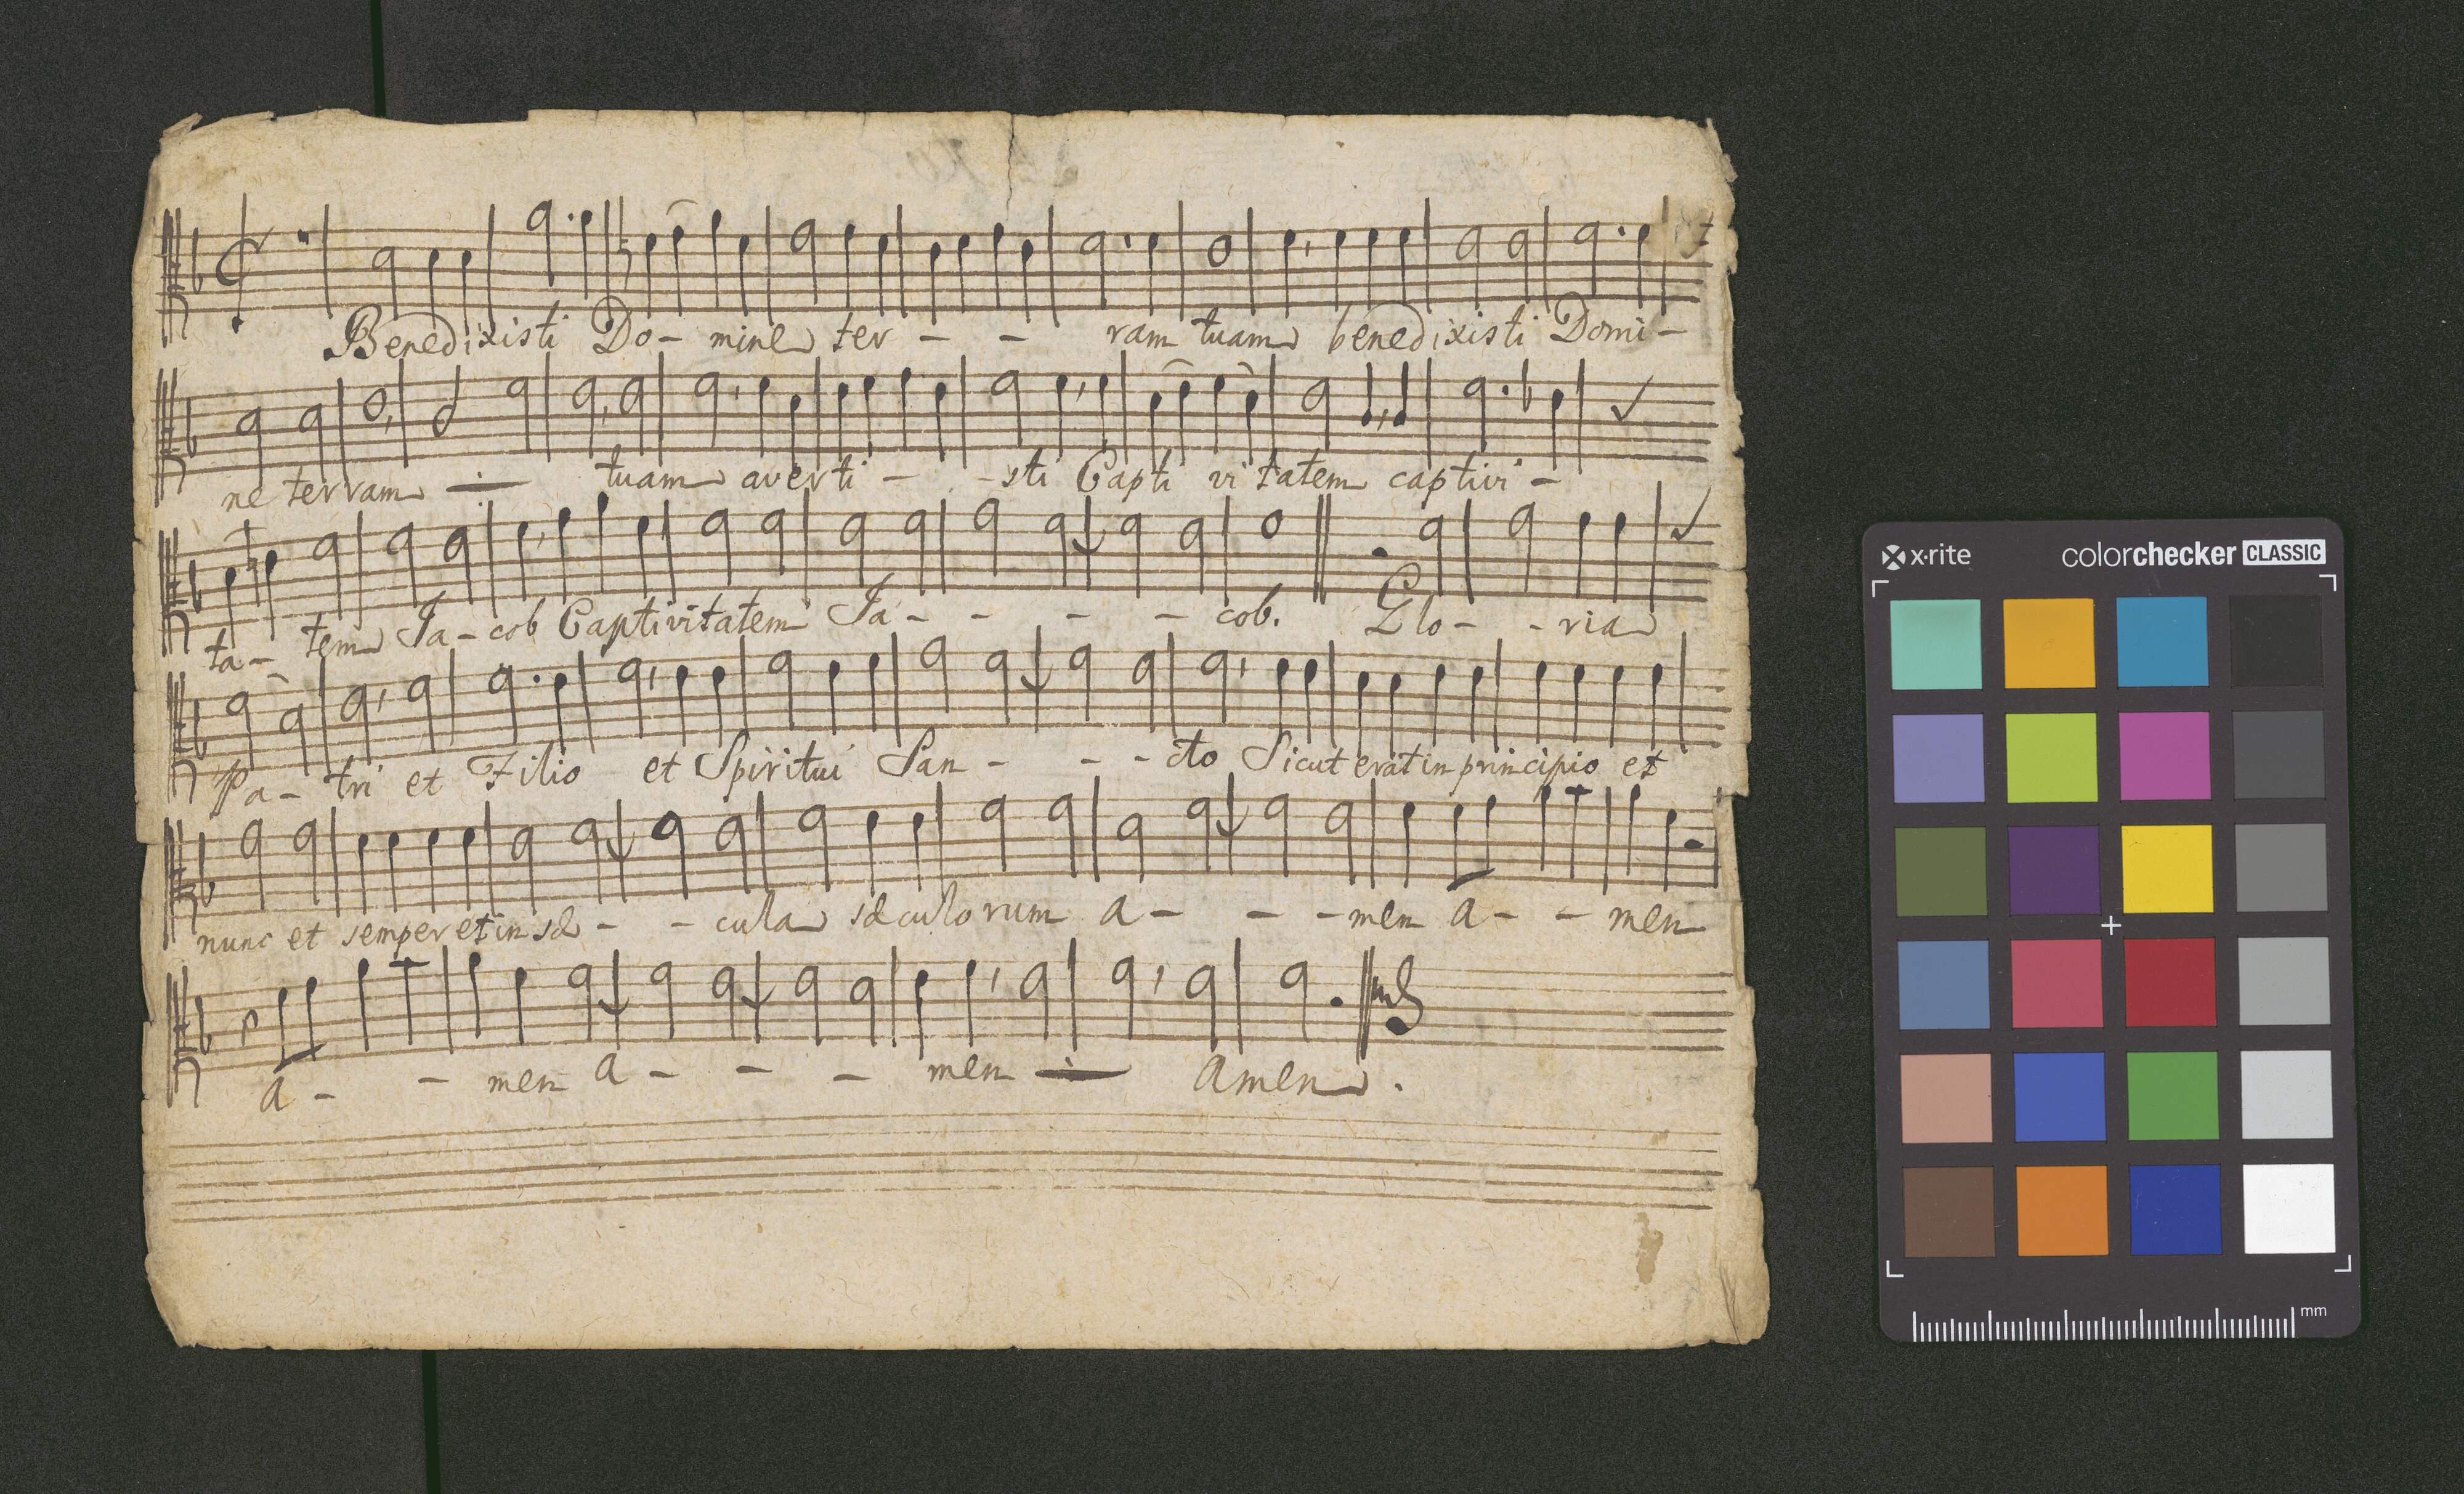 Benedixisti Do - mine ter - - ram tuam benedixisti Domi -
ne terram tuam averti - - sti Capti vitatem captivi -
ta - tem Ja - cob Captivitatem Ja - - - - cob. Glo - - ria
Pa - tri et Filio et Spiritui San - - - cto Sicut erat in principio et
nunc et semper et in sæ - - cula sæculorum a - - - men a - - men
a - - men a - - - men amen.
x·rite colorchecker CLASSIC
mm